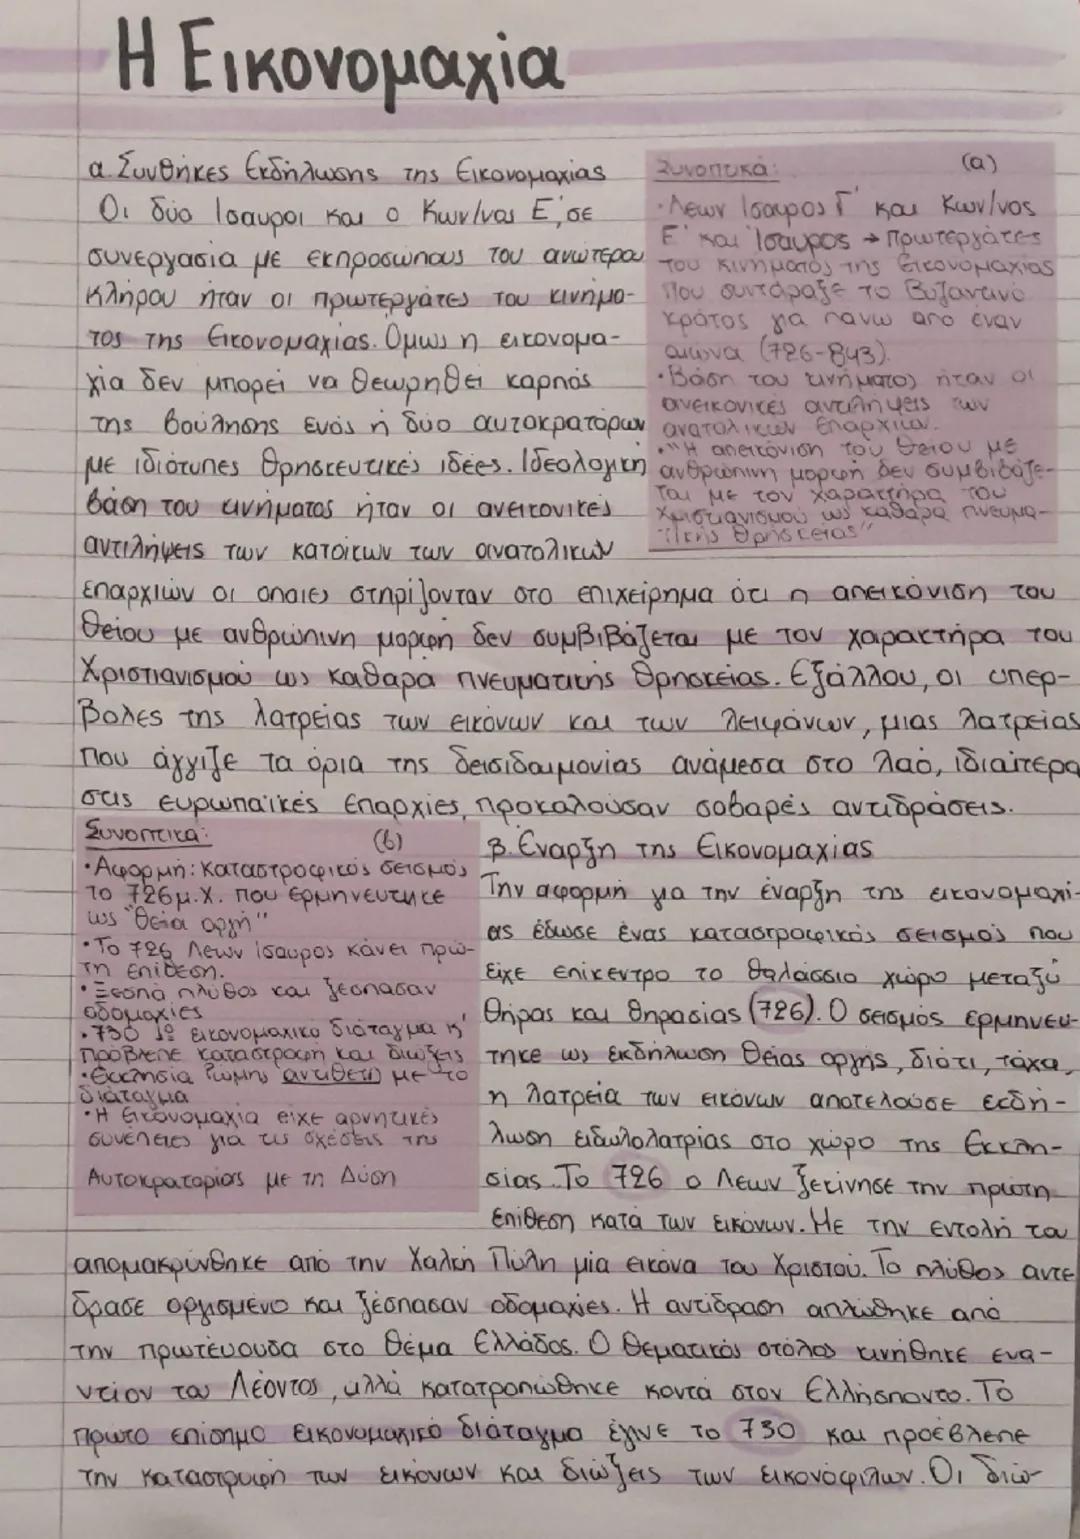 Η Εικονομαχία
α. Συνθήκες Εκδήλωσης της Εικονομαχίας
Οι δύο Ίσαυροι και ο Κων/νος Ε', σε
συνεργασία με εκπροσώπους του ανώτερου
κλήρου ήταν οι πρωτεργάτες του κινήμα-
τος της Εικονομαχίας. Όμως η εικονομα-
χία δεν μπορεί να θεωρηθεί καρπός
της βούλησης ενός ή δύο αυτοκρατόρων
με ιδιότυπες θρησκευτικές ιδέες. Ιδεολογική
βάση του κινήματος ήταν οι ανεικονικές
αντιλήψεις των κατοίκων των ανατολικών
επαρχιών οι οποίες στηρίζονταν στο επιχείρημα ότι η απεικόνιση του
Θείου με ανθρώπινη μορφή δεν συμβιβάζεται με τον χαρακτήρα του
Χριστιανισμού ως καθαρά πνευματικής θρησκείας. Εξάλλου, οι υπερ-
βολές της λατρείας των εικόνων και των λειψάνων, μιας λατρείας
που άγγιζε τα όρια της δεισιδαιμονίας ανάμεσα στο λαό, ιδιαίτερα
στις ευρωπαϊκές επαρχίες, προκαλούσαν σοβαρές αντιδράσεις.
Συνοπτικά: (α)
• Λέων Ίσαυρος Γ' και Κων/νος
Ε' και Ίσαυρος → Πρωτεργάτες
του κινήματος της Εικονομαχίας
που συντάραξε το Βυζαντινό
κράτος για πάνω από έναν
αιώνα (726-843).
• Βάση του κινήματος ήταν οι
ανεικονικές αντιλήψεις των
ανατολικών επαρχιών.
• "Η απεικόνιση του Θείου με
ανθρώπινη μορφή δεν συμβιβάζε-
ται με τον χαρακτήρα του
Χριστιανισμού ως καθαρά πνευμα-
τικής θρησκείας"
Συνοπτικά: (β)
• Αφορμή: καταστροφικός σεισμός
το 726μ.Χ. που ερμηνεύτηκε
ως "θεία οργή"
• Το 726 Λέων Ίσαυρος κάνει πρώ-
τη επίθεση.
• Ξεσπά πλήθος και ξέσπασαν
οδομαχίες
• 730 1ο εικονομαχικό διάταγμα κ'
προβλεπε καταστροφή και διώξεις
• Εκκλησία Ρώμης αντίθετη με το
διάταγμα
• Η Εικονομαχία είχε αρνητικές
συνέπειες για τις σχέσεις της
Αυτοκρατορίας με τη Δύση
β. Έναρξη της Εικονομαχίας
Την αφορμή για την έναρξη της εικονομαχί-
ας έδωσε ένας καταστροφικός σεισμός που
είχε επίκεντρο το θαλάσσιο χώρο μεταξύ
Θήρας και Θηρασίας (726). Ο σεισμος ερμηνεύ-
τηκε ως εκδήλωση θείας οργής, διότι, τάχα,
η λατρεία των εικόνων αποτελούσε εκδή-
λωση ειδωλολατρίας στο χώρο της Εκκλη-
σίας. Το 726 ο Λέων ξεκίνησε την πρώτη
επίθεση κατά των εικόνων. Με την εντολή του
απομακρύνθηκε από την Χαλκή Πύλη μία εικόνα του Χριστού. Το πλήθος αντέ
δρασε οργισμένο και ξέσπασαν οδομαχίες. Η αντίδραση απλώθηκε από
την πρωτεύουσα στο θέμα Ελλάδος. Ο θεματικός στόλος κινήθηκε ενα-
ντίον του Λέοντος, αλλά κατατροπώθηκε κοντά στον Ελλήσποντο. Το
πρώτο επίσημο εικονομαχικό διάταγμα έγινε το 730 και προέβλεπε
την καταστροφή των εικόνων και διώξεις των εικονόφιλων. Οι διώ-